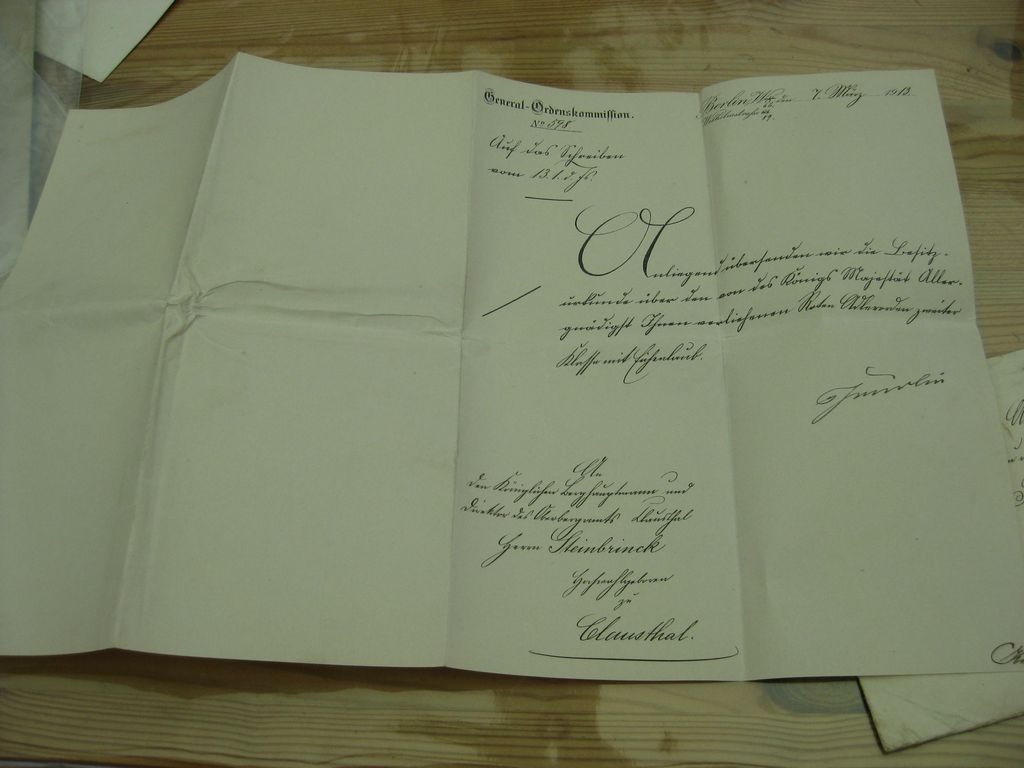 General-Ordenskommission.
No 598
Auf das Schreiben
vom 13.1. d. Js.
Berlin W. 66, den 7. März 1913
Wilhelmstraße
Anliegend übersenden wir die Besitz-
urkunde über den von des Königs Majestät Aller-
gnädigst Ihnen verliehenen Roten Adlerorden zweiter
Klasse mit Eichenlaub.
An
den Königlichen Berghauptmann und
Direktor des Oberbergamts Clausthal
Herrn Steinbrinck
Hochwohlgeboren
zu
Clausthal.